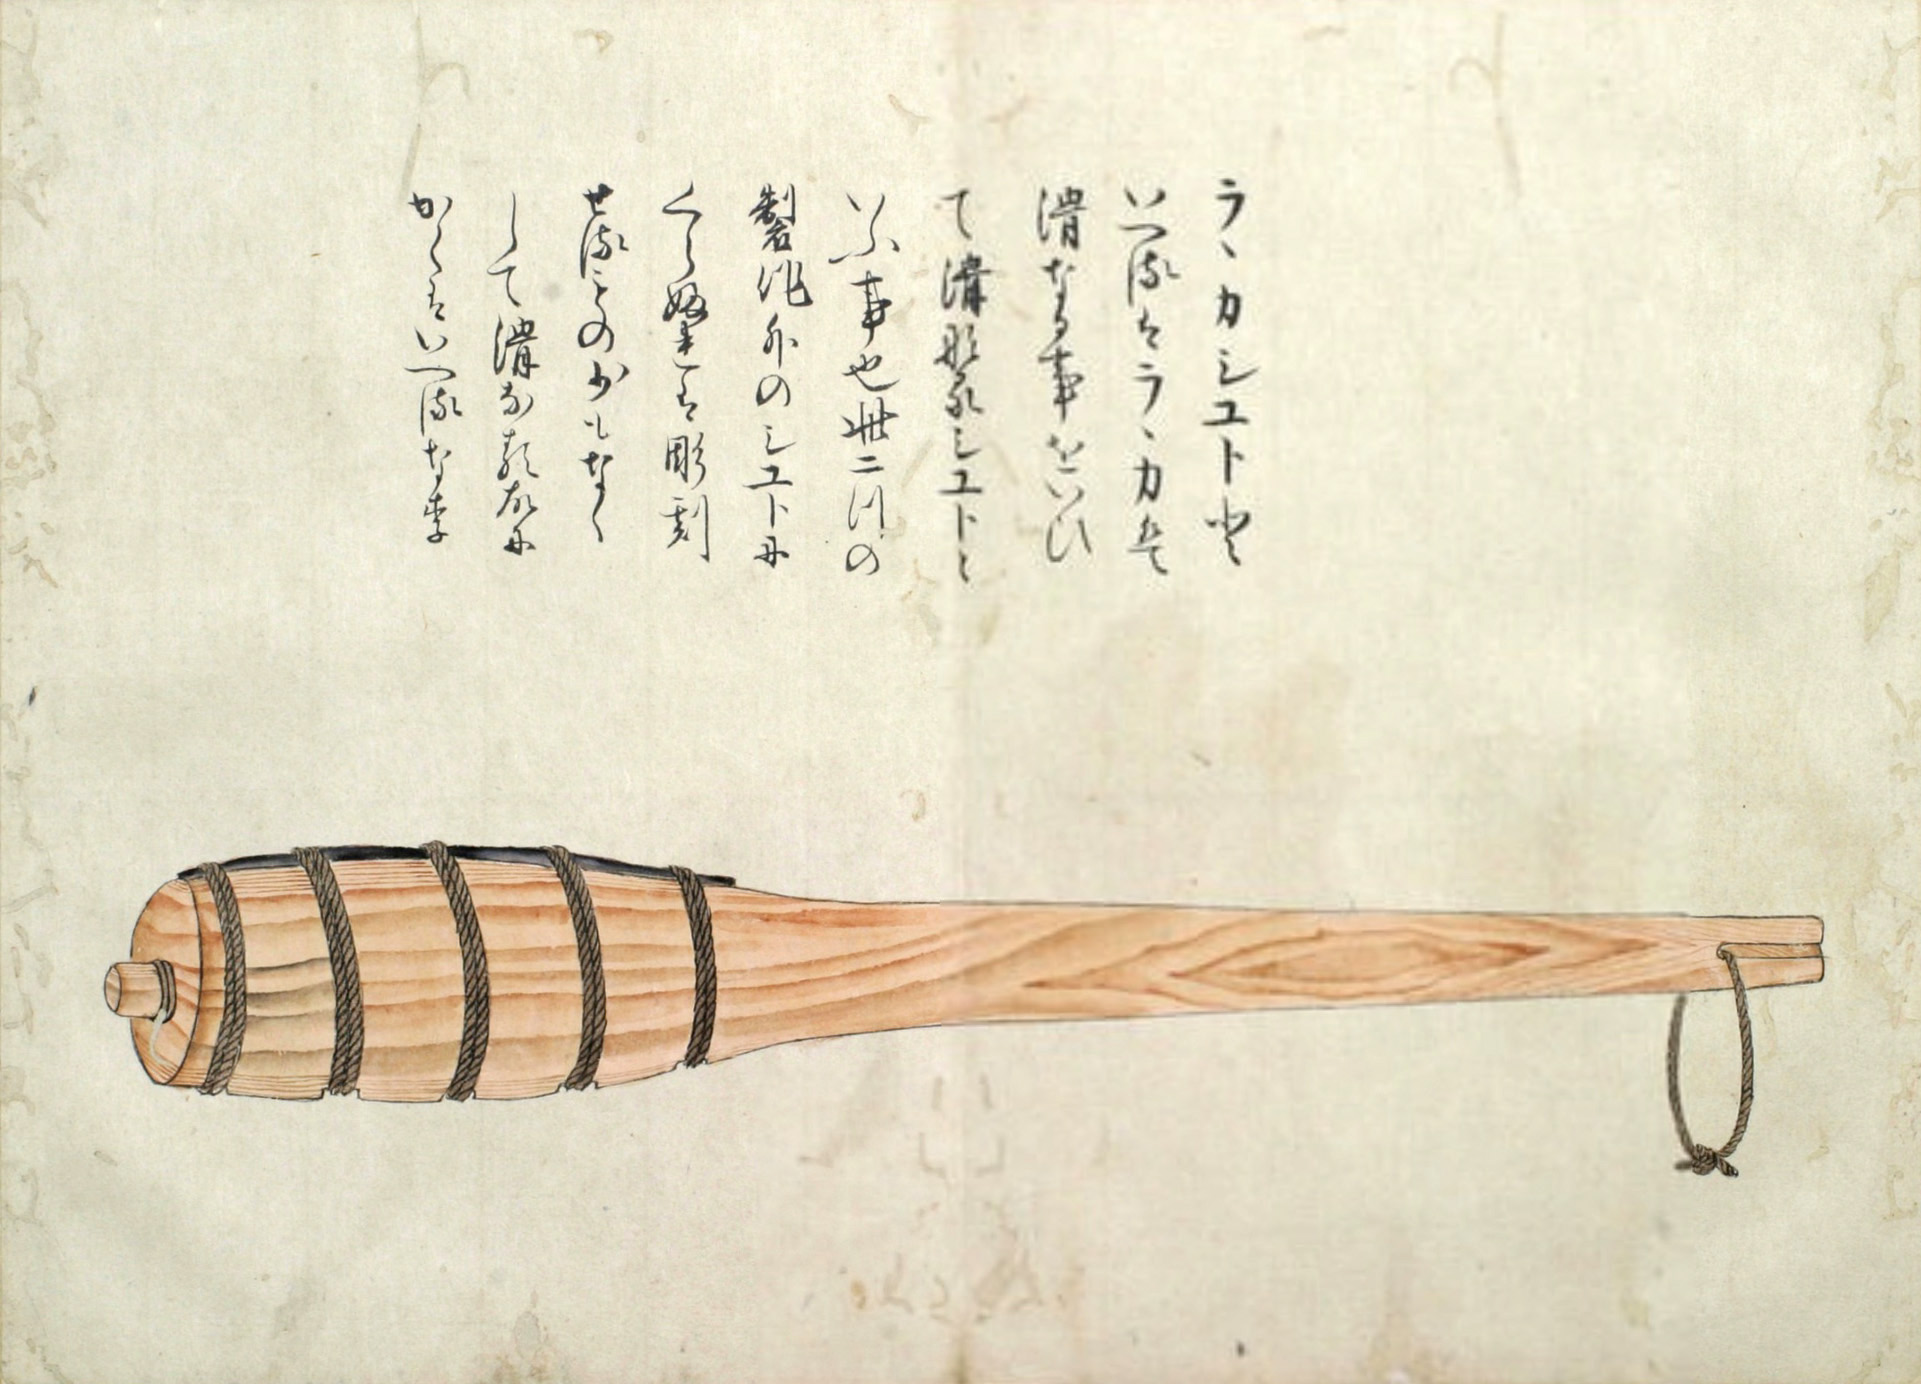 ラヽカシユトと
いへるはラヽカは
滑なる事をいひ
て滑なるシユトと
いふ事也此二つの
製作外のシユトに
くらふれは彫刻
せることの少もなく
して滑なる故に
かくはいへるなり